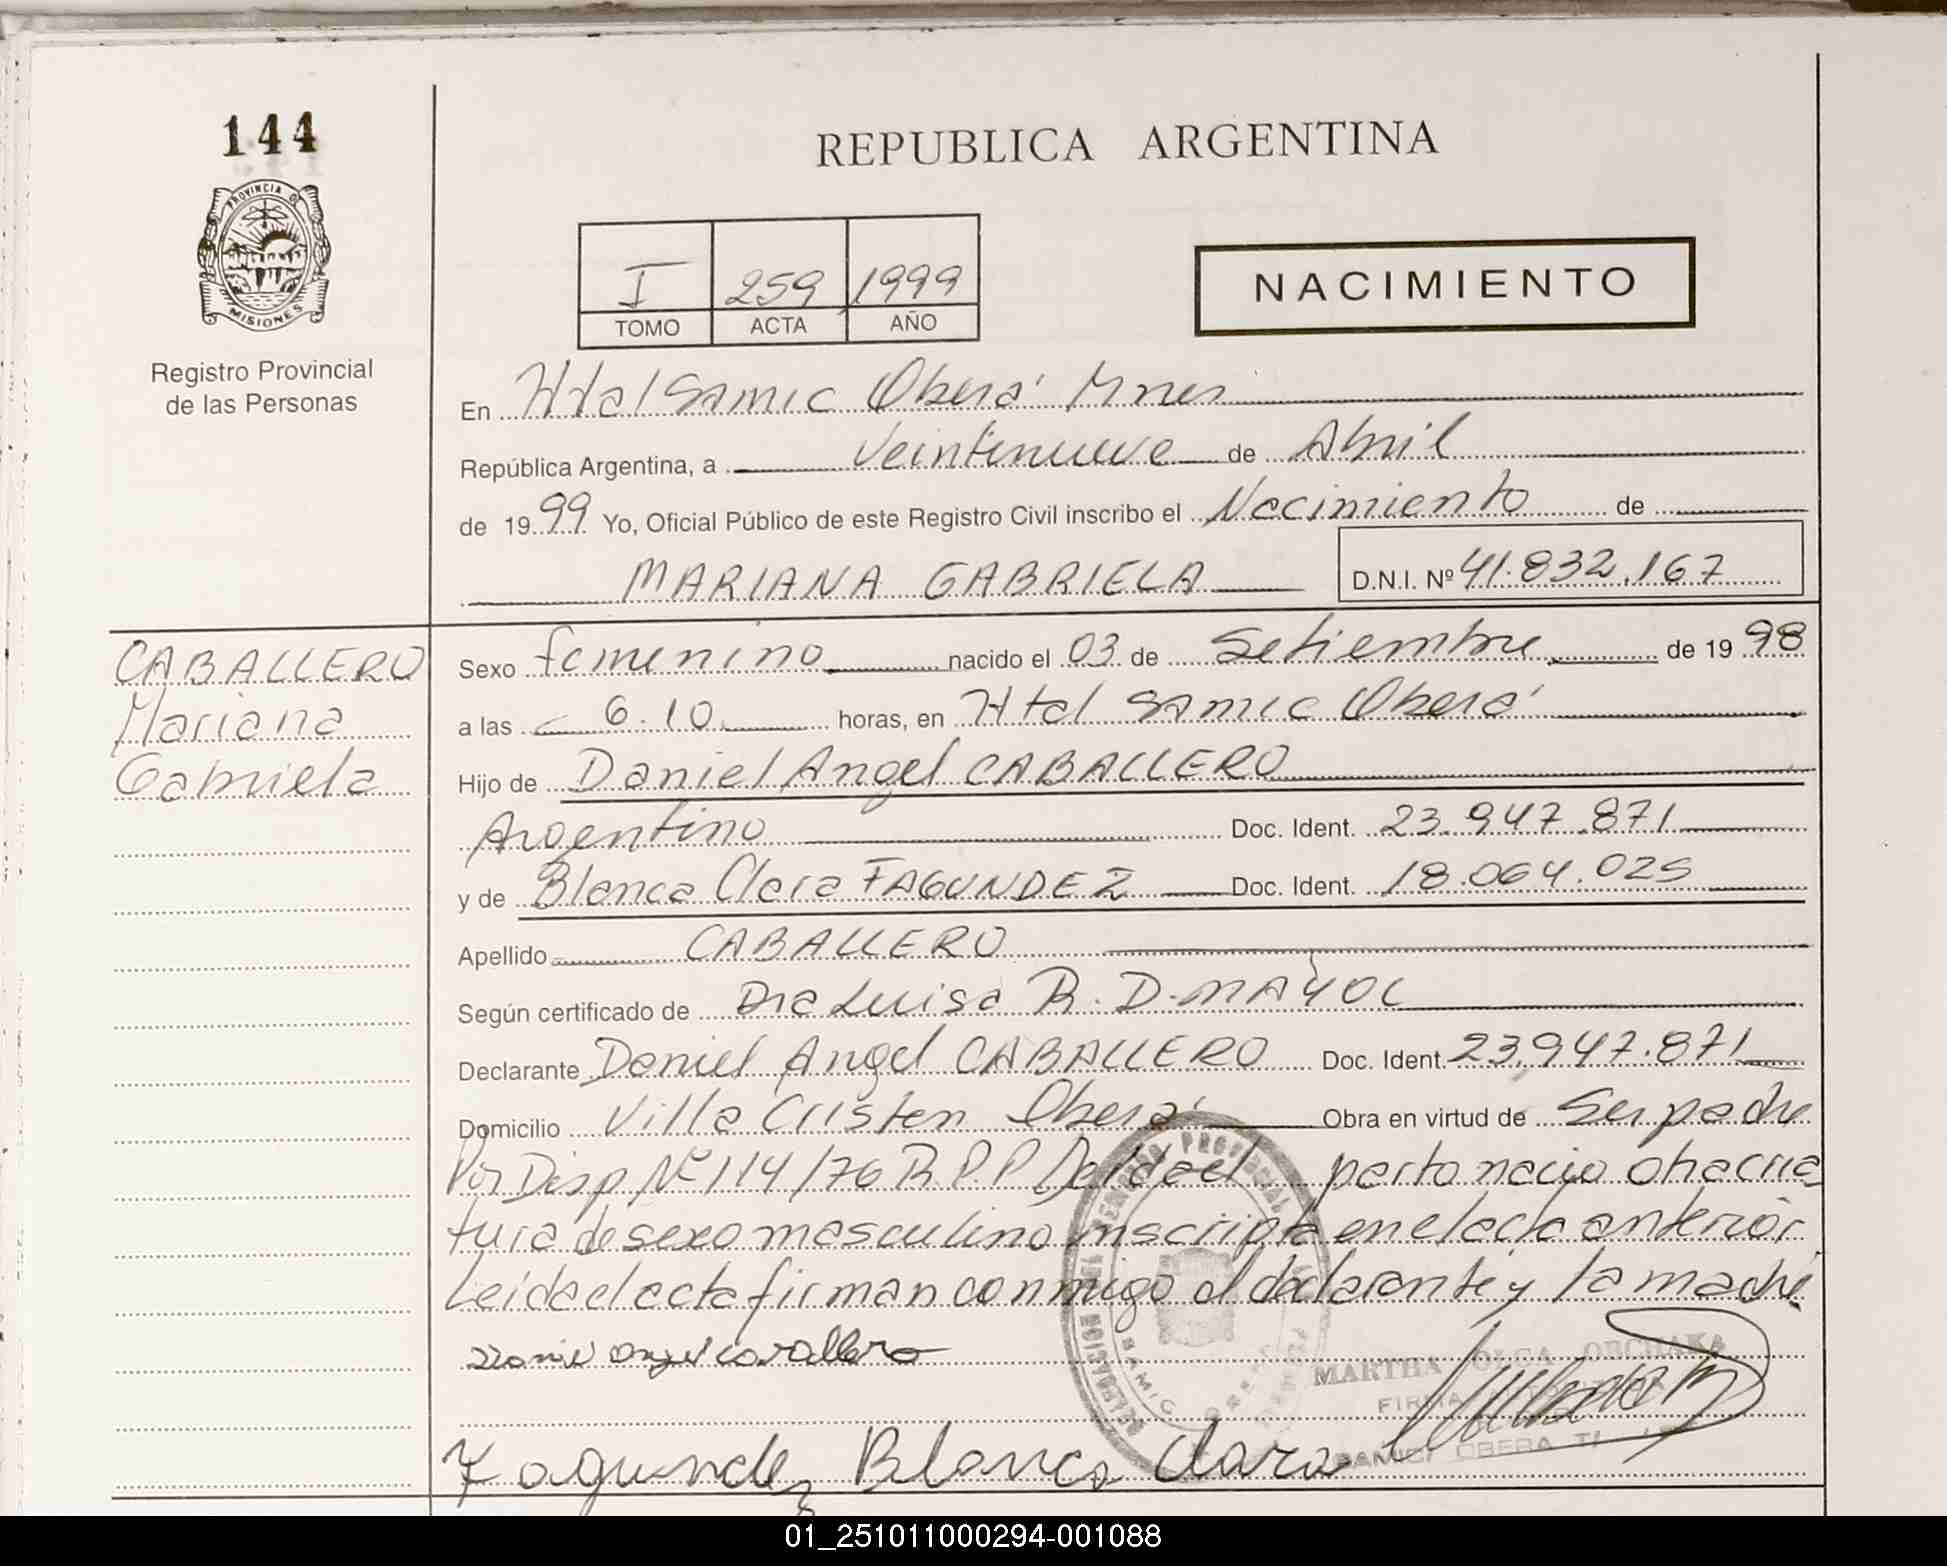 144
REPUBLICA ARGENTINA
PROVINCIA D
MISIONES
Registro Provincial
de las Personas
I 259 1999
TOMO ACTA AÑO
NACIMIENTO
En Htal Samic Oberá Mnes
República Argentina, a veintinueve de Abril
de 1999 Yo, Oficial Público de este Registro Civil inscribo el Nacimiento de
MARIANA GABRIELA D.N.I. Nº 41.832.167
CABALLERO
Mariana
Gabriela
Sexo femenino nacido el 03 de Setiembre de 1998
a las 6.10 horas, en Htal Samic Oberá
Hijo de Daniel Angel CABALLERO
Argentino Doc. Ident. 23.947.871
y de Blanca Clara FAGUNDEZ Doc. Ident. 18.064.025
Apellido CABALLERO
Según certificado de Dra Luisa R. D. MAYOL
Declarante Daniel Angel CABALLERO Doc. Ident. 23.947.871
Domicilio Villa Cristen Oberá Obra en virtud de Ser padre
Por Disp Nº 114/76 R.P.P. parto nacio otra cria
tura de sexo masculino inscripta en el acta anterior
Leida el acta firman conmigo el declarante y la madre
Daniel Angel Cavallero
MARTHA OLGA
Fagundez Blanca Clara
01_251011000294-001088